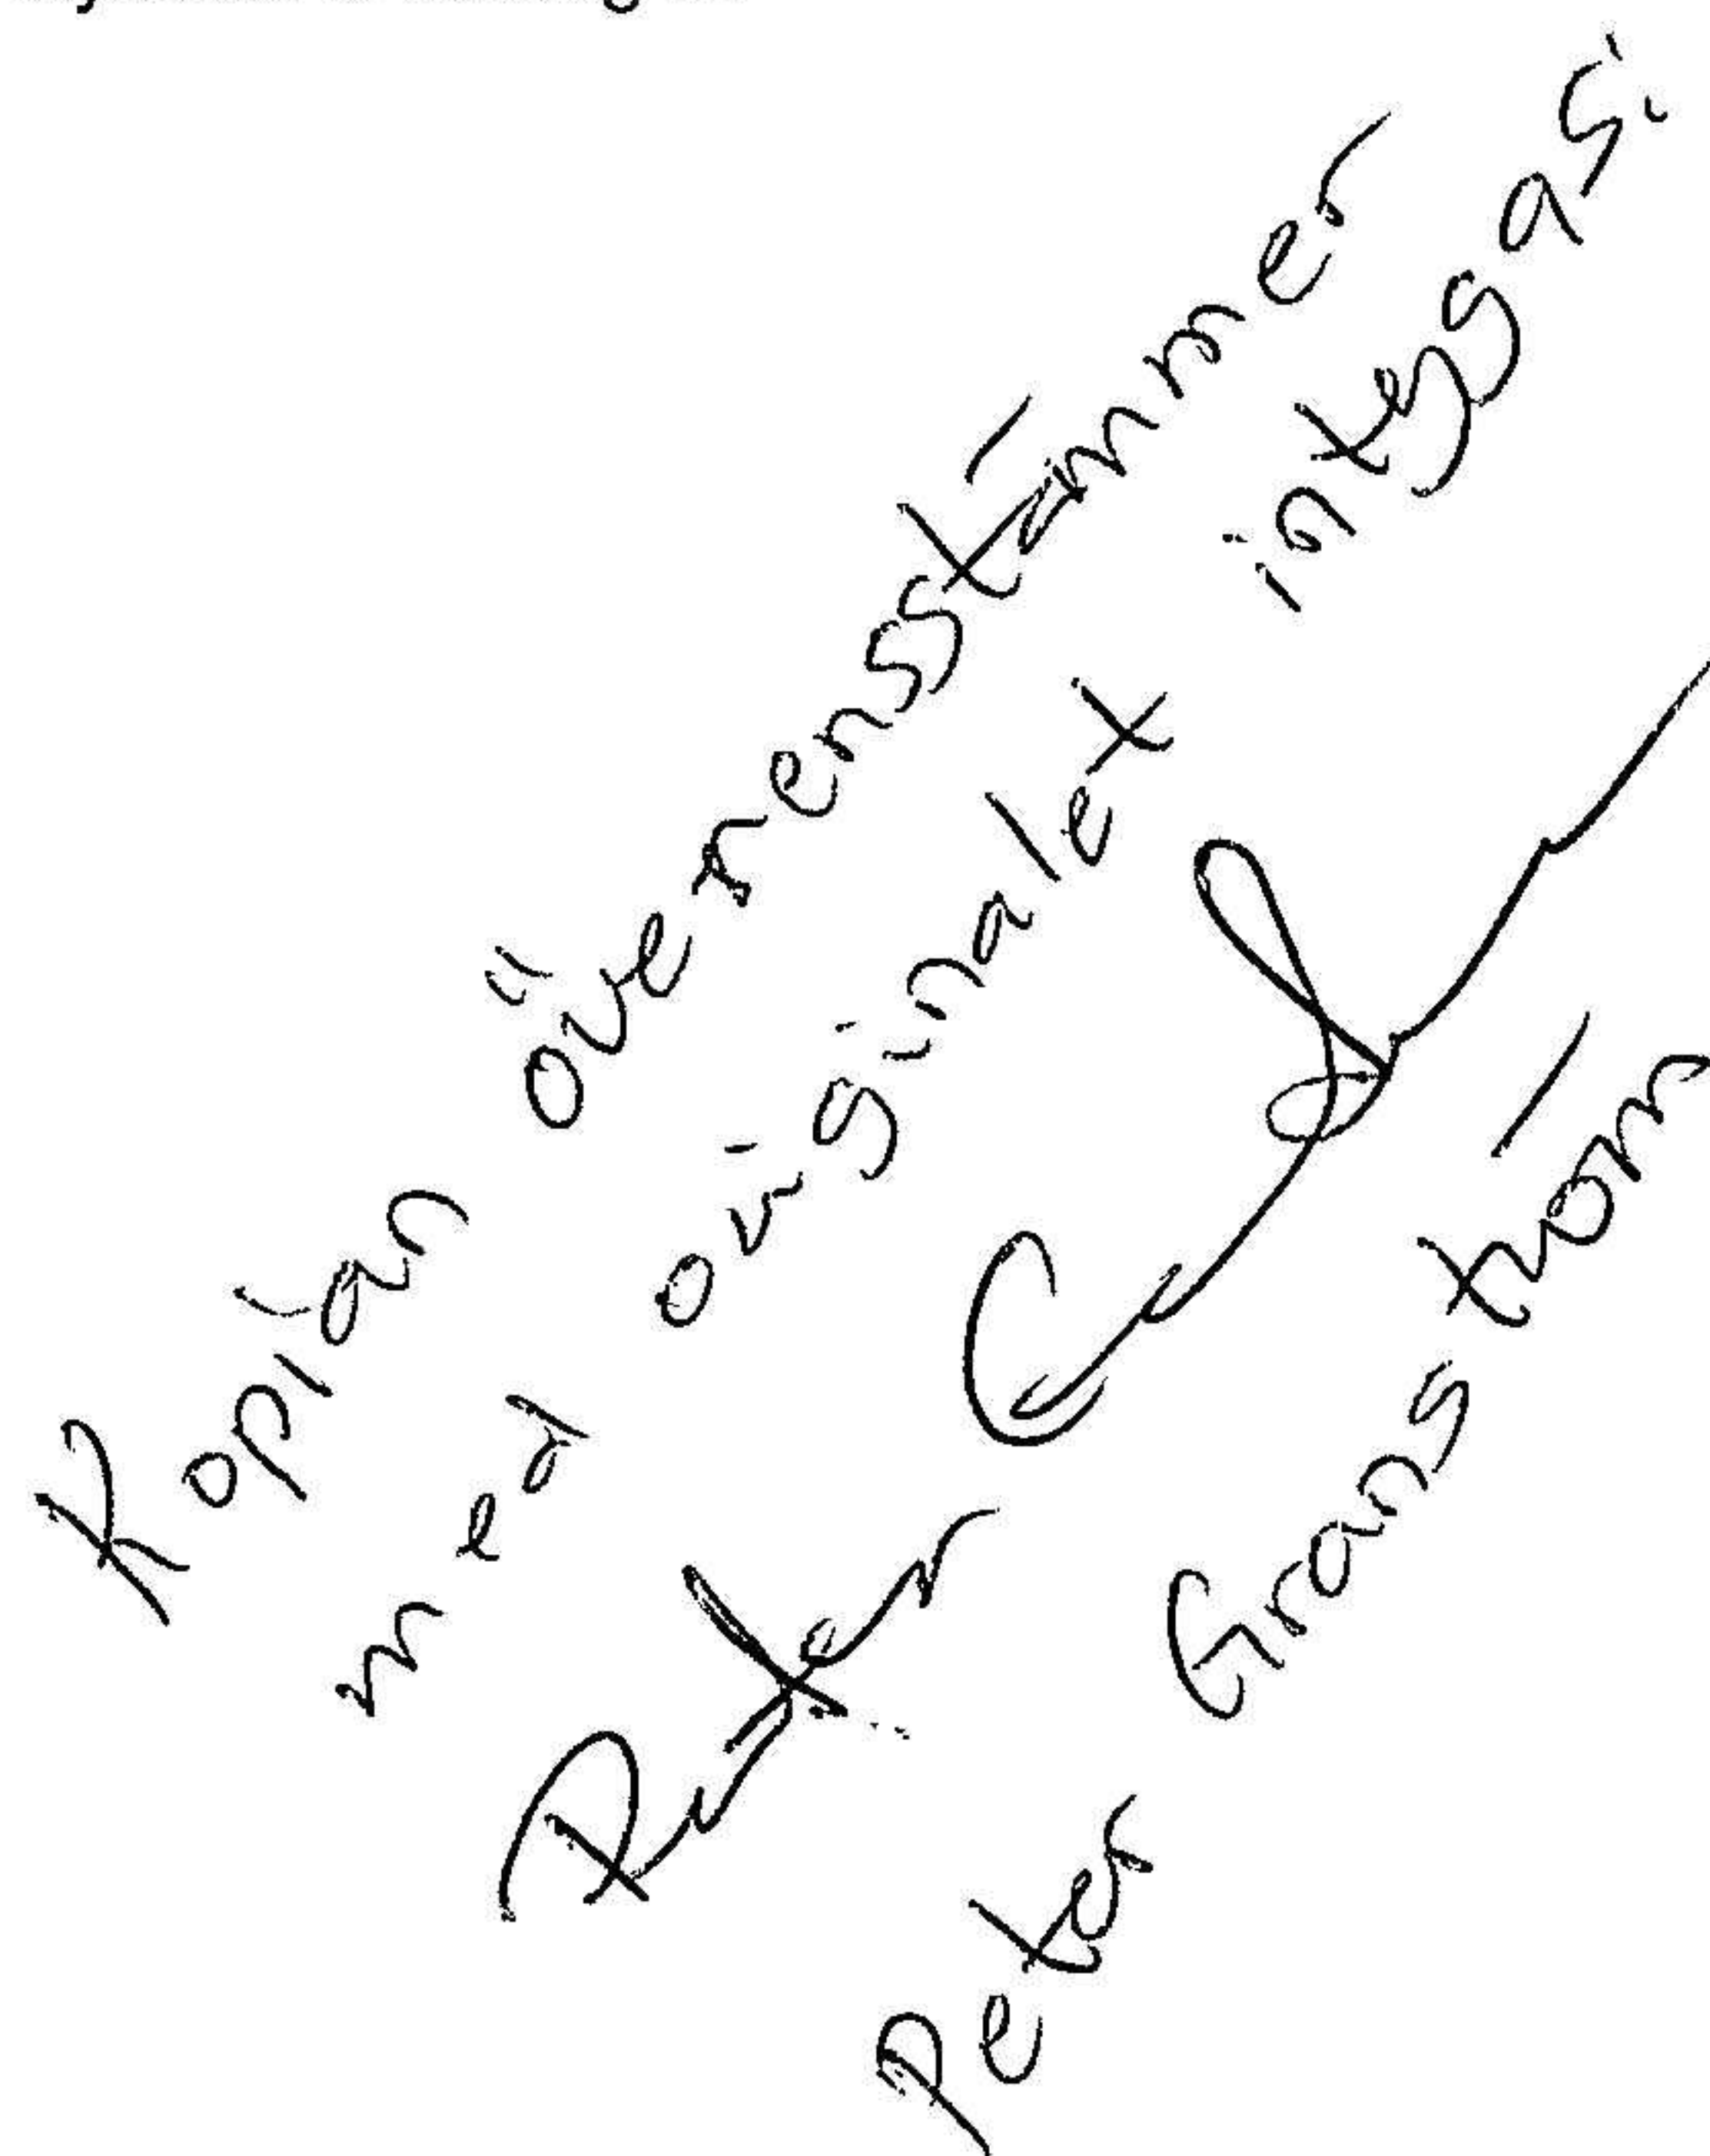 Kopian överensstämmer
med originalet intygas:
Peter Granström